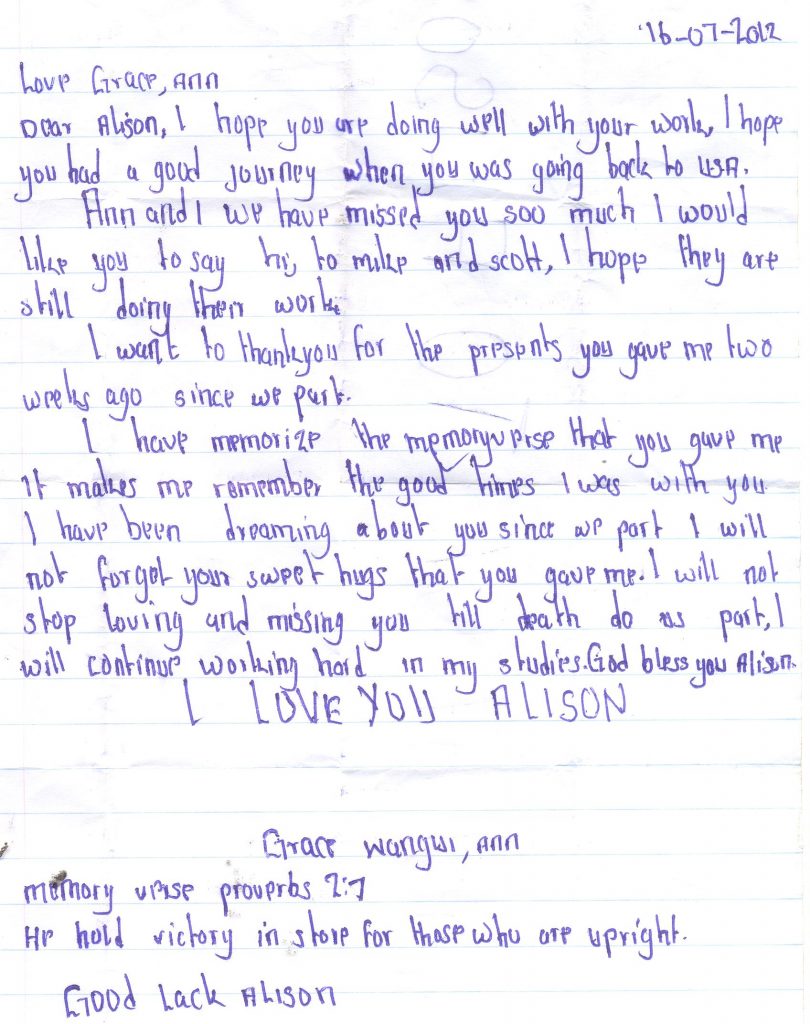 16-07-2012
Love Grace, Ann
Dear Alison, I hope you are doing well with your work, I hope
you had a good journey when you was going back to USA.
Ann and I we have missed you soo much I would
like you to say hi, to mike and scott, I hope they are
still doing their work
I want to thankyou for the presents you gave me two
weeks ago since we part.
I have memorize the memoryverse that you gave me
It makes me remember the good times I was with you
I have been dreaming about you since we part I will
not forget your sweet hugs that you gave me. I will not
stop loving and missing you till death do us part, I
will continue working hard in my studies. God bless you Alison.
I LOVE YOU ALISON
Grace Wangui, Ann
memory verse proverbs 2:7
He hold victory in store for those who are upright.
Good Lack Alison